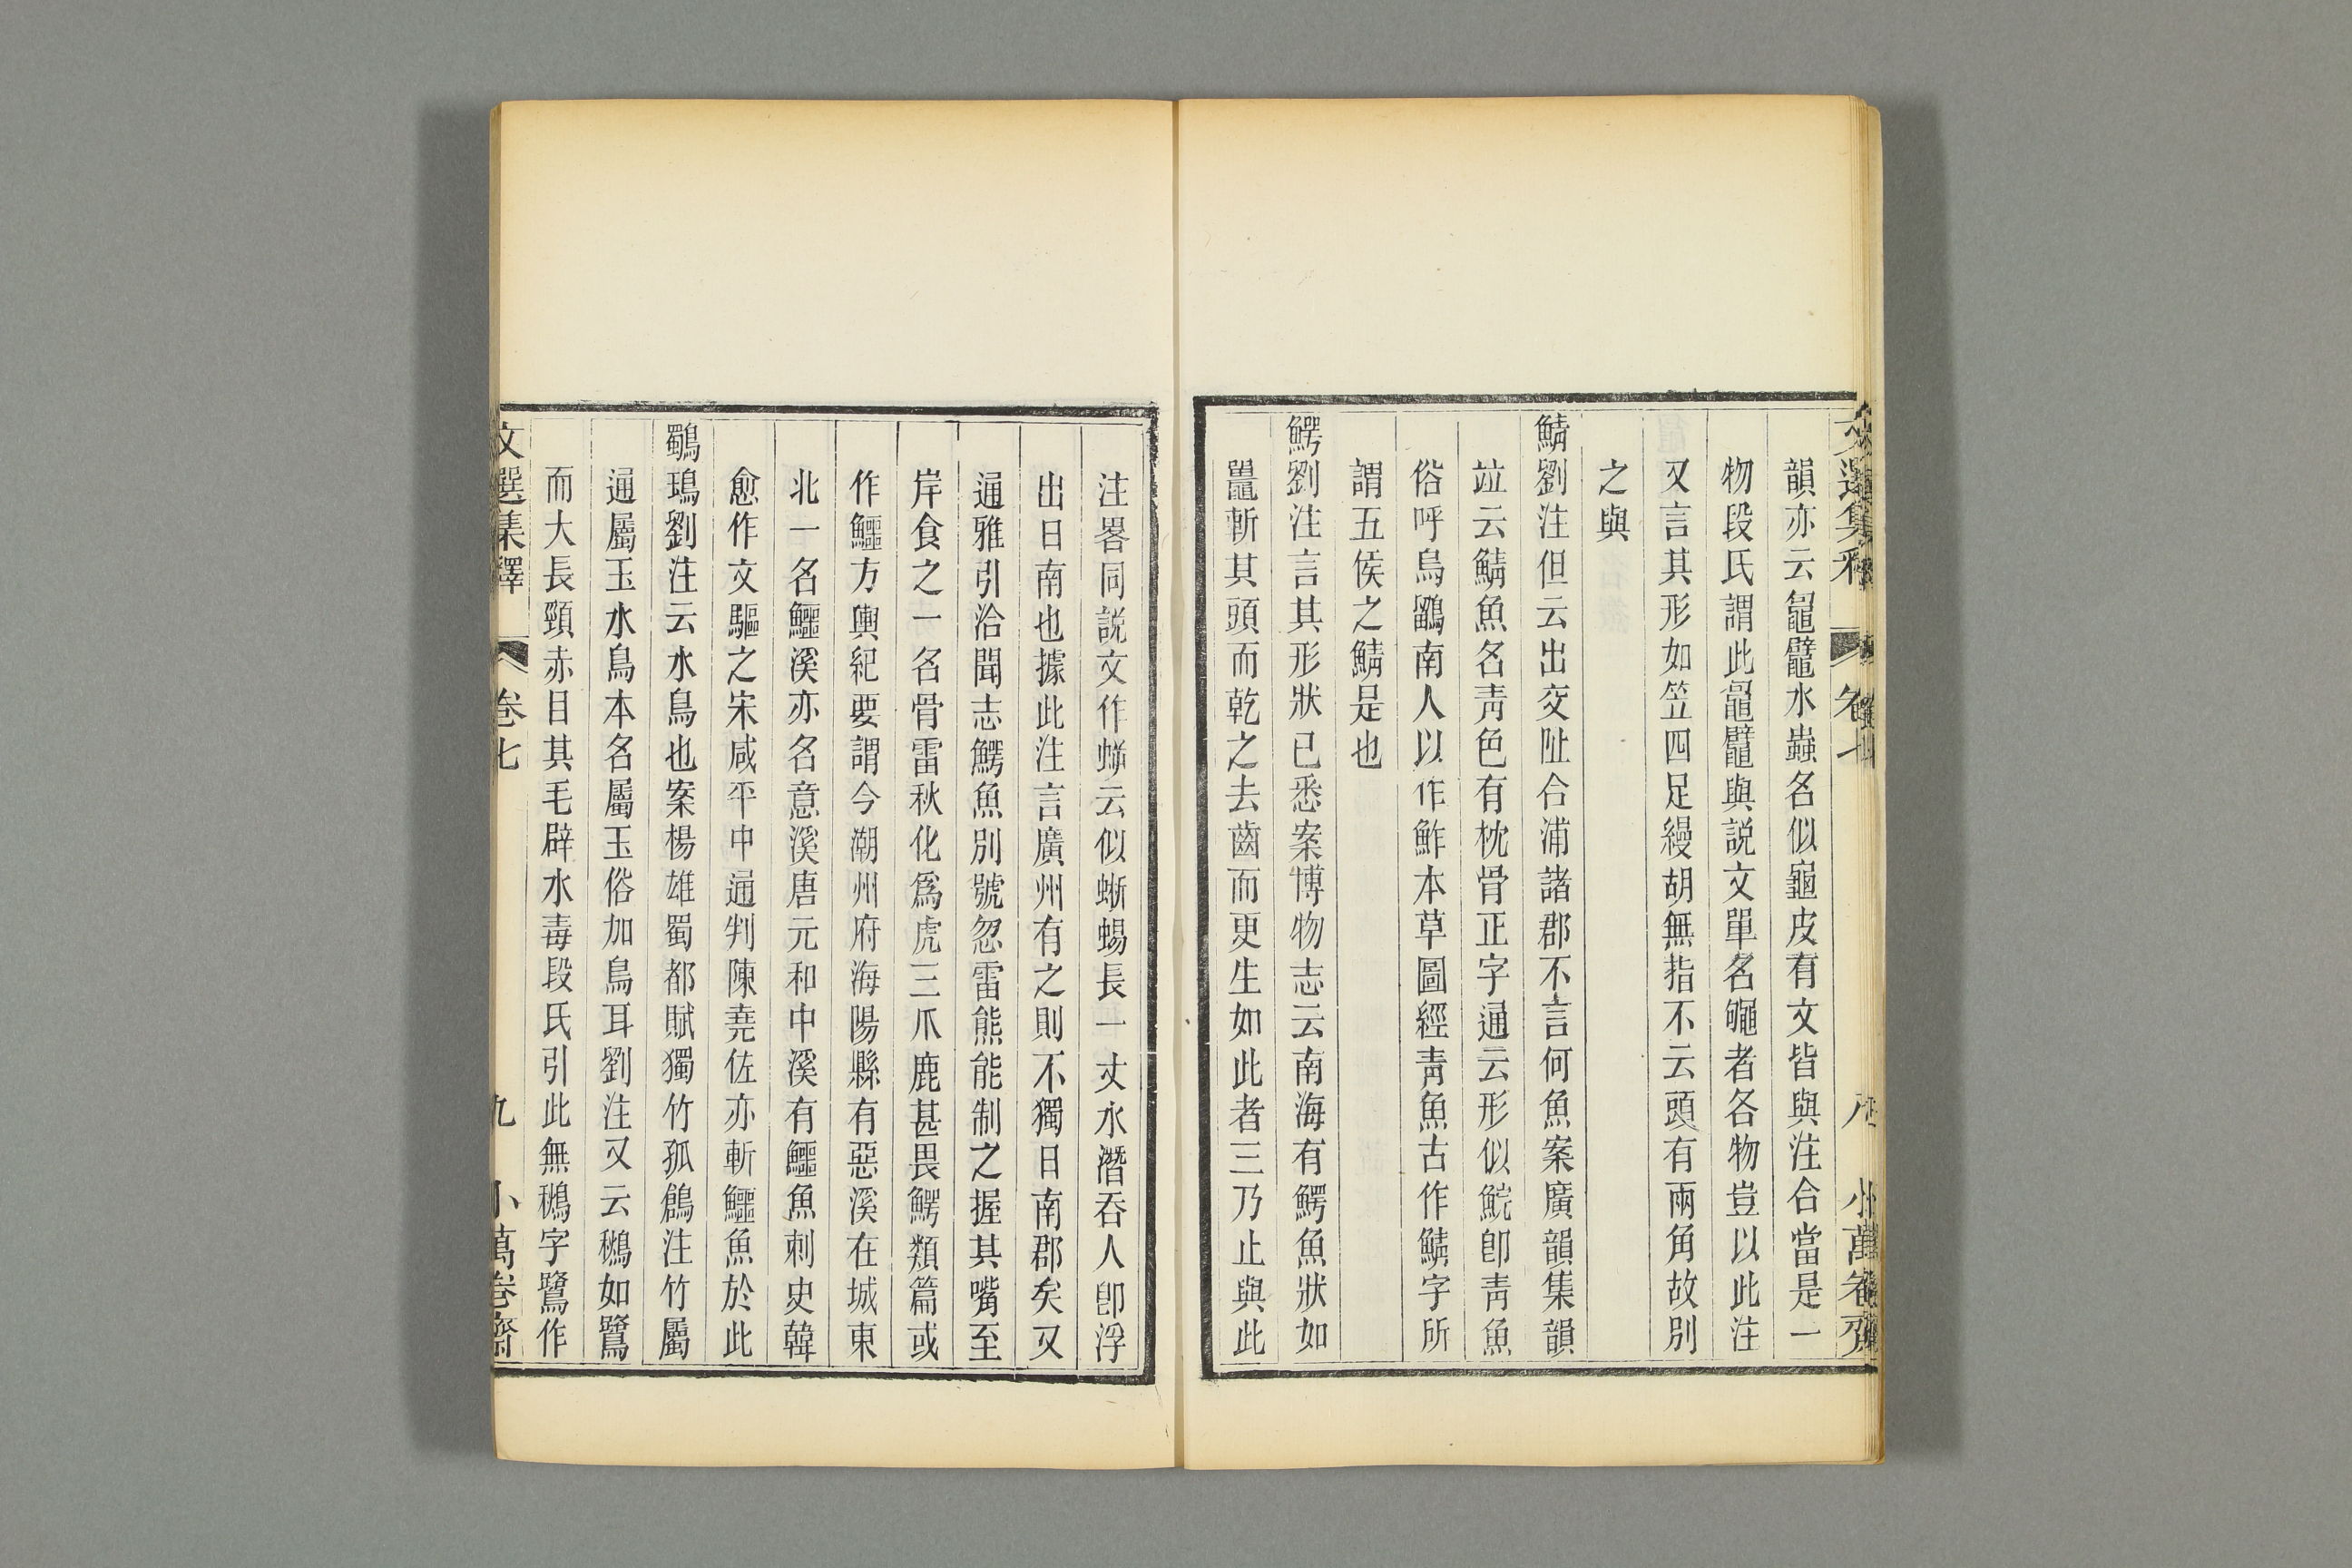 韻亦云鼂鼊水蟲名似龜皮有文皆與注合當是一
物段氏謂此鼂鼊與説文單名𪓟者各物豈以此注
又言其形如笠四足縵胡無指不云頭有兩角故別
之與
鯖劉注但云出交阯合浦諸郡不言何魚案廣韻集韻
竝云鯖魚名青色有枕骨正字通云形似鯇卽青魚
俗呼烏鰡南人以作鮓本草圖經青魚古作鯖字所
謂五侯之鯖是也
鰐劉注言其形狀已悉案博物志云南海有鰐魚狀如
鼉斬其頭而乾之去齒而更生如此者三乃止與此
注畧同説文作䖸云似蜥蜴長一丈水潛吞人卽浮
出日南也據此注言廣州有之則不獨日南郡矣又
通雅引洽聞志鰐魚別號忽雷熊能制之握其嘴至
岸食之一名骨雷秋化爲虎三爪鹿甚畏鰐類篇或
作鱷方輿紀要謂今潮州府海陽縣有惡溪在城東
北一名鱷溪亦名意溪唐元和中溪有鱷魚刺史韓
愈作文驅之宋咸平中通判陳堯佐亦斬鱷魚於此
鸀鳿劉注云水鳥也案楊雄蜀都賦獨竹孤鶬注竹屬
通屬玉水鳥本名屬玉俗加鳥耳劉注又云鷞如鷺
而大長頸赤目其毛辟水毒段氏引此無字鷺作
文選集釋 卷七 九 小萬卷齋